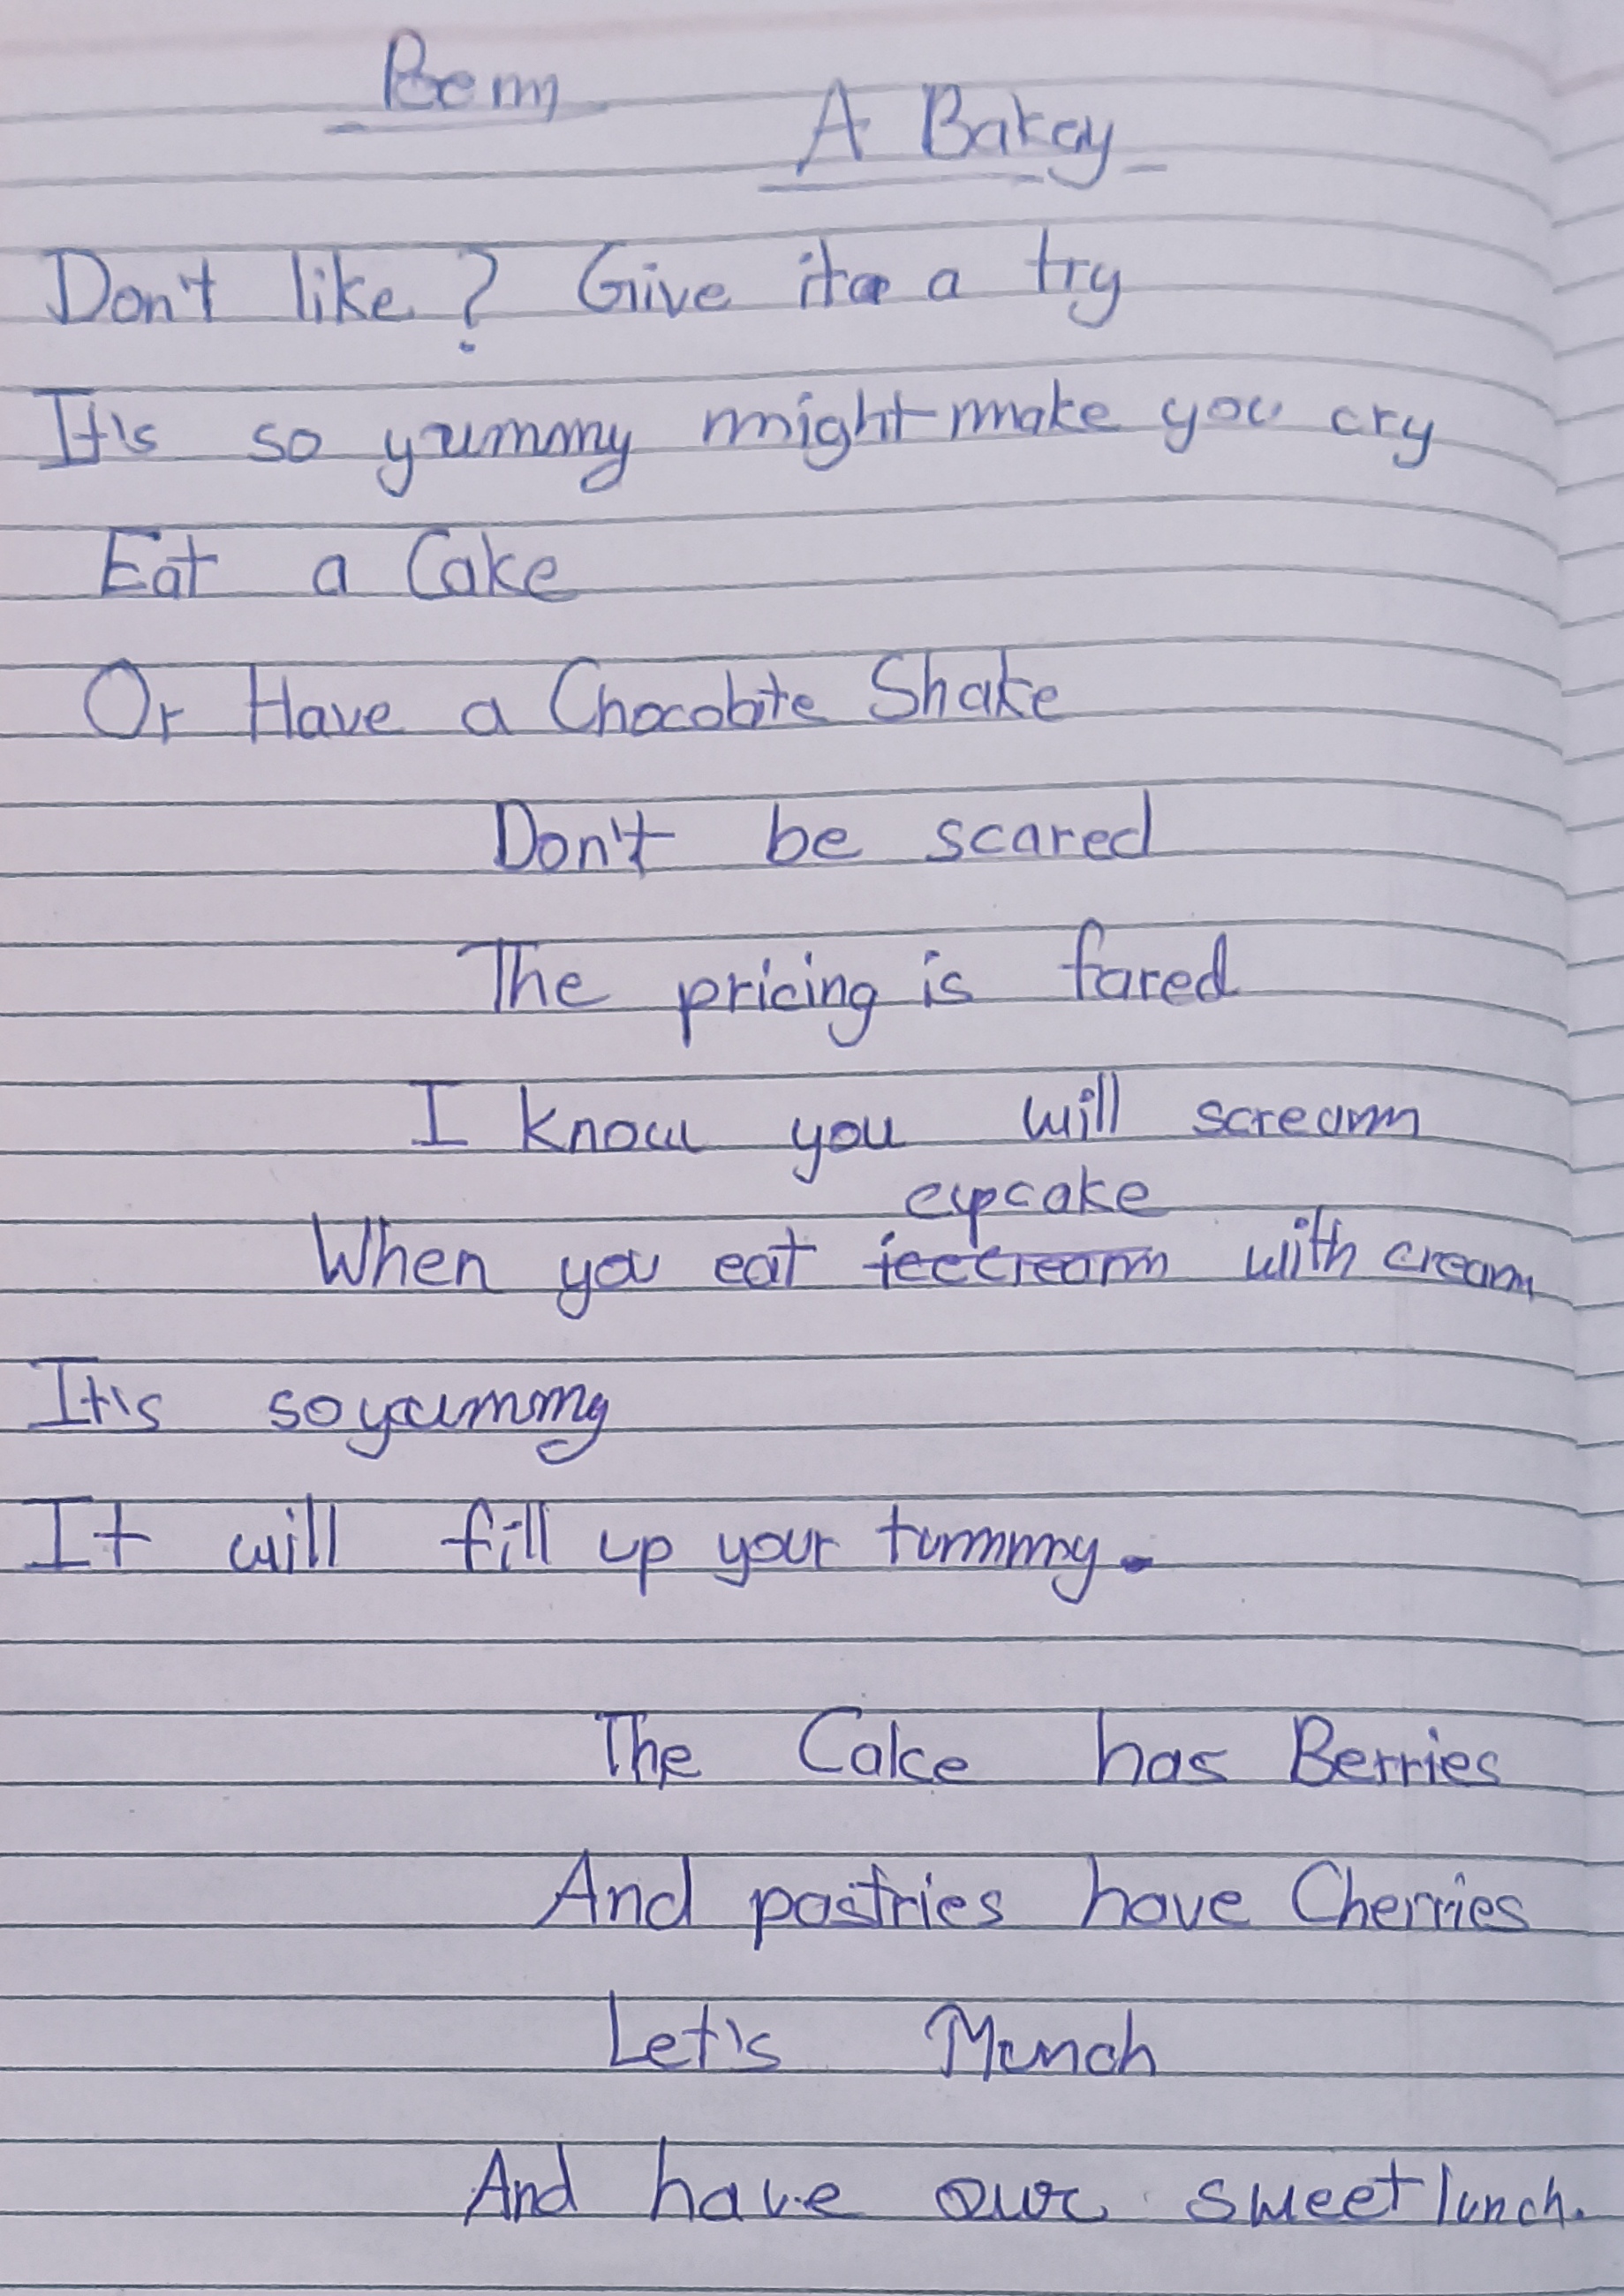 Poem
A Bakay
Don't like? Give it a try
It's so yummy might make you cry
Eat a Cake
Or Have a Chocolate Shake
Don't be scared
The pricing is fared
I know you will scream
cupcake
When you eat icecream with cream
It's so yummy
It will fill up your tummy.
The Cake has Berries
And pastries have Cherries
Let's Munch
And have our sweet lunch.